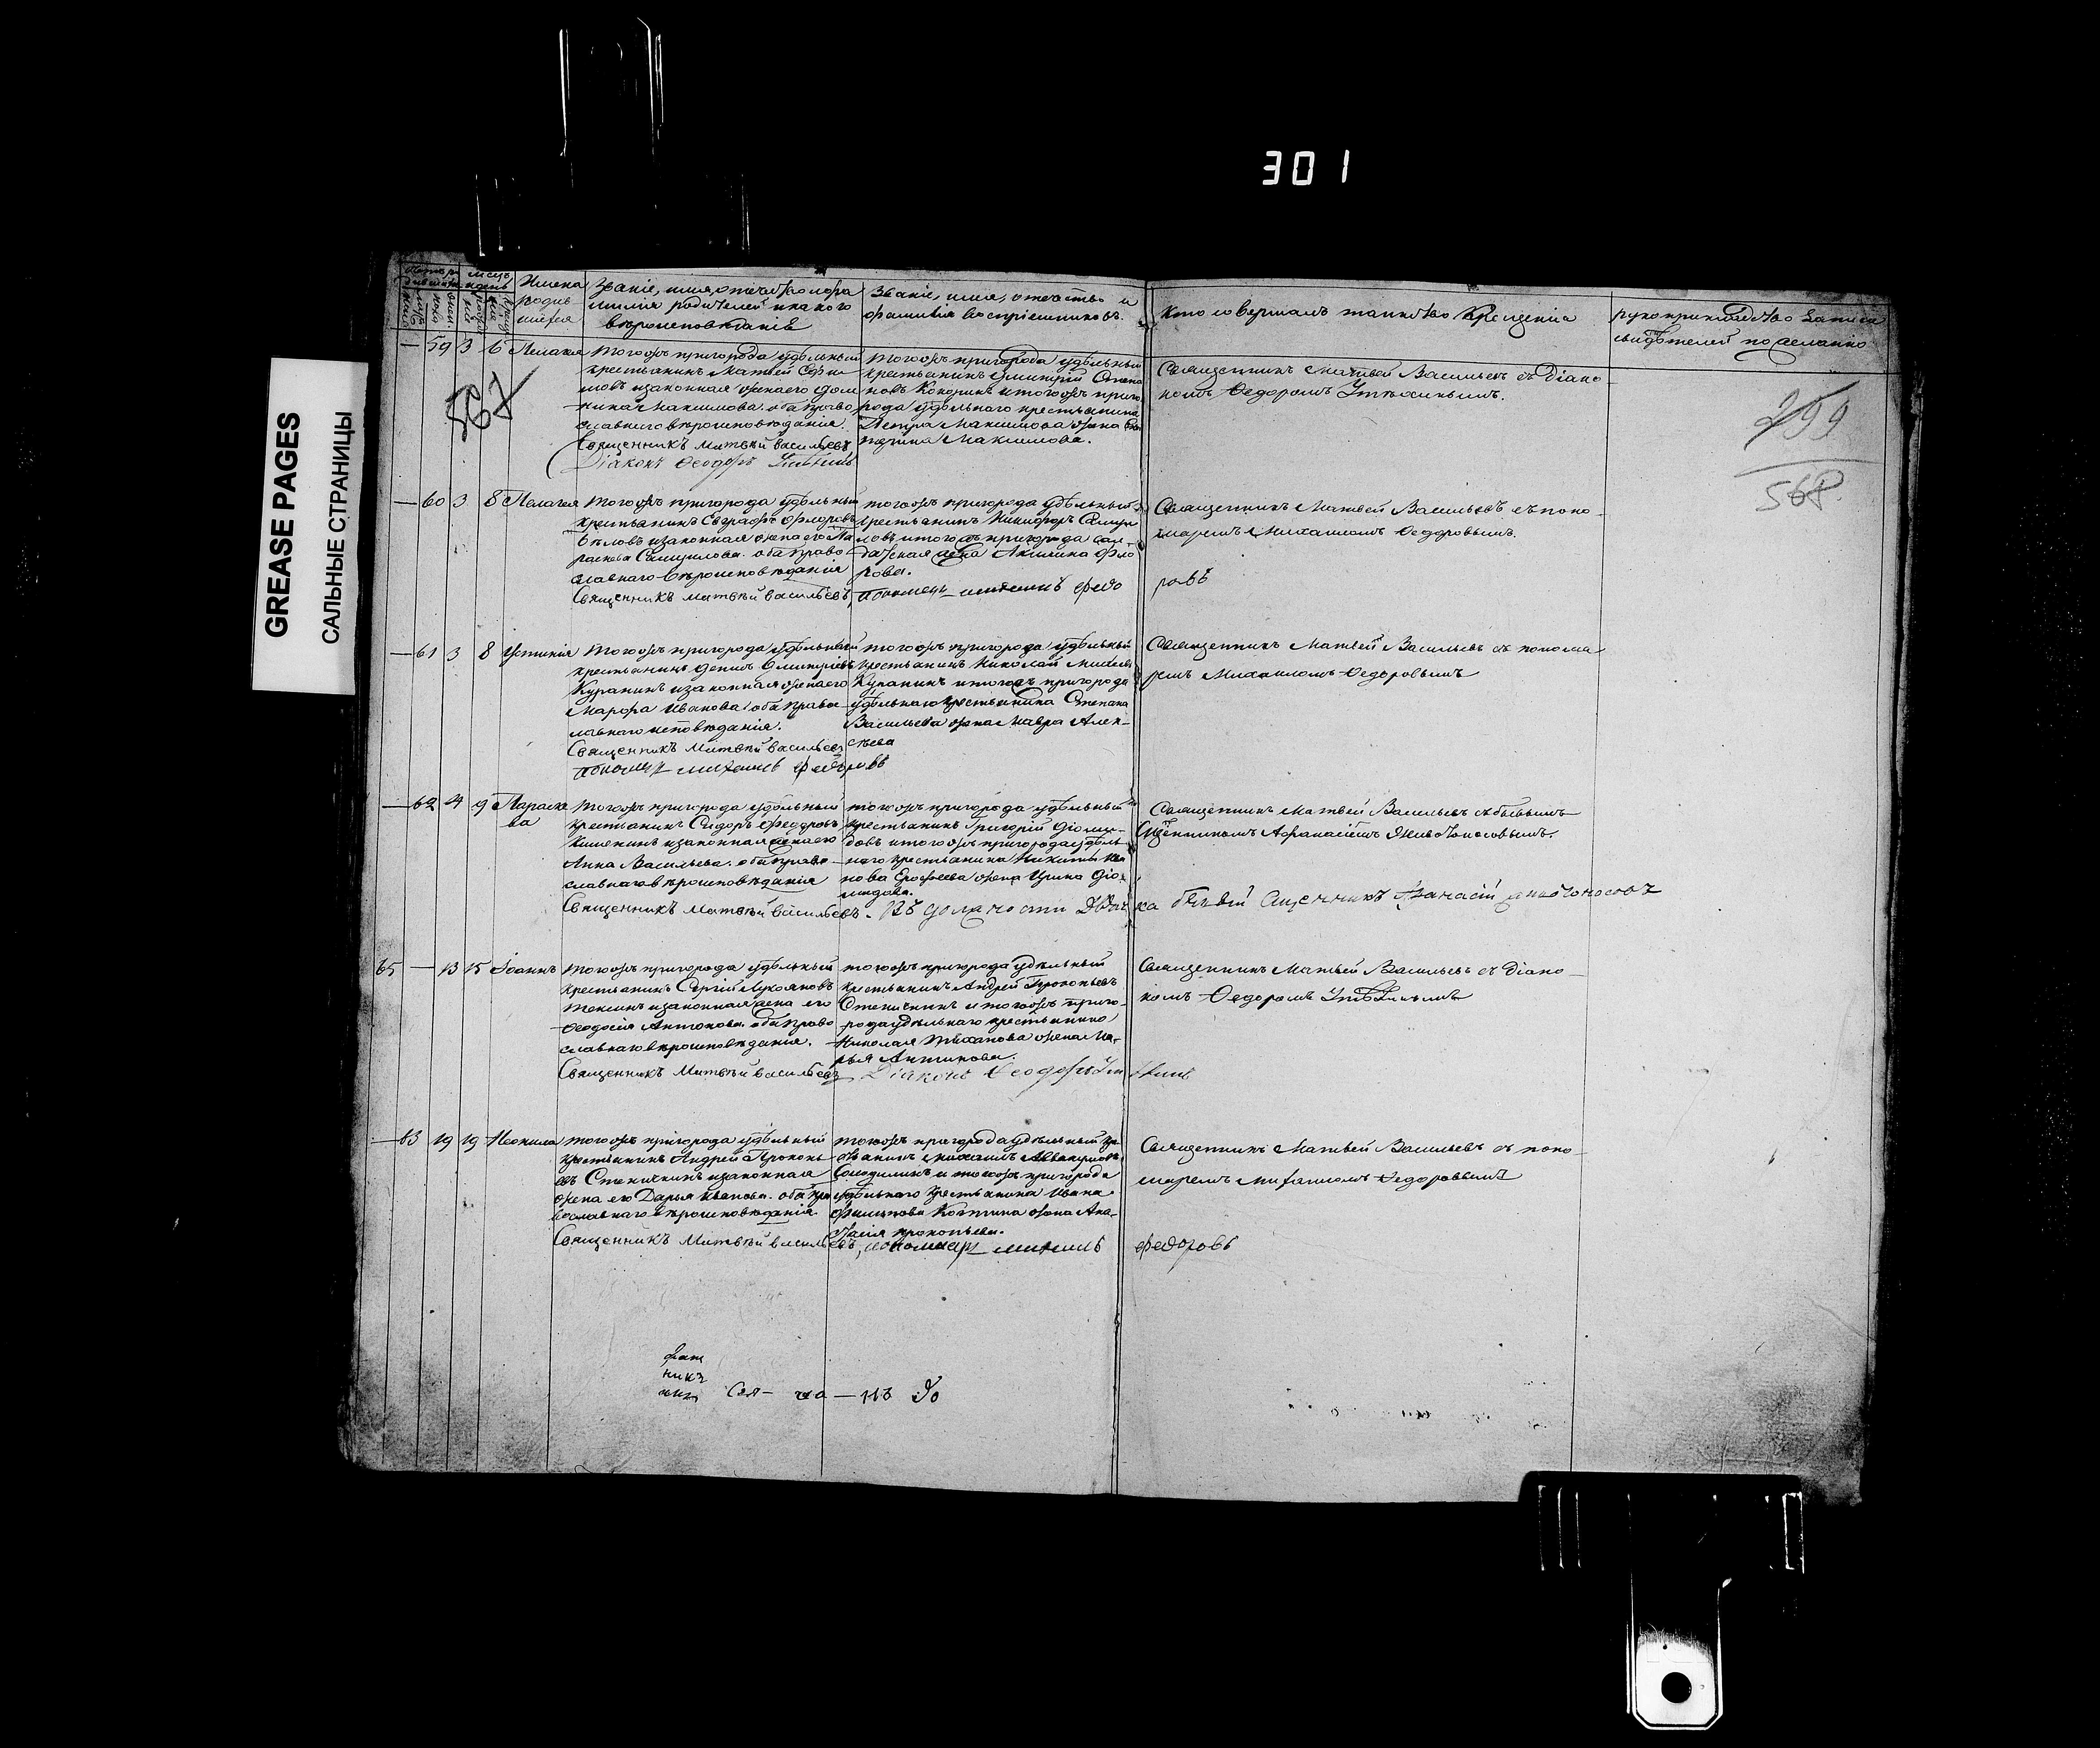 301
GREASE PAGES
САЛЬНЫЕ СТРАНИЦЫ
Имена родившихся
Званіе, имя, отчество и фамилія родителей и какого вѣроисповѣданія
Званіе, имя, отчество и фамилія воспріемниковъ.
Кто совершалъ таинство Крещенія
рукоприкладство
свидѣтелей по желанію
567
299
568
— 59 3 6 Пелагея
тогожъ пригорода удѣльный
крестьянинъ Матвей
мовъ изаконная жена его
Максимова. оба право
славнаго вѣроисповѣданія.
Священникъ Матвѣй Васильевъ,
Діаконъ Ѳеодоръ
тогожъ пригорода удѣльный
крестьянинъ Димитрій Степа
новъ Кокоринъ и тогожъ приго
рода удѣльнаго крестьянина
Петра Максимова жена
Максимова.
Священникъ Матвей Васильевъ съ Діако
номъ Ѳедоромъ
— 60 3 8 Пелагея
тогожъ пригорода удѣльный
крестьянинъ Евграфъ Флоровъ
Бѣловъ изаконная жена его Па
раскева Самуилова. оба право
славнаго вѣроисповѣданія
Священникъ Матвѣй Васильевъ,
тогожъ пригорода удѣльный
крестьянинъ Никифоръ Самуи
ловъ и тогожъ пригорода сол
датская жена Акилина Фло
рова.
пономарь михаилъ федо
ровъ
Священникъ Матвей Васильевъ съ поно
маремъ Михаиломъ Ѳедоровымъ.
— 61 3 8 Устинія
тогожъ пригорода удѣльный
крестьянинъ Денисъ Димитріевъ
Куранинъ изаконная жена его
Марфа Иванова. оба право
славнаго исповѣданія.
Священникъ Матвѣй Васильевъ
пономарь михаилъ федоровъ
тогожъ пригорода удѣльный
крестьянинъ Николай
Куранинъ и тогожъ пригорода
удѣльнаго крестьянина Степана
Васильева жена Мавра Алек
сѣева
Священникъ Матвей Васильевъ съ понома
ремъ Михаиломъ Ѳедоровымъ
— 62 4 9 Параске
ва
тогожъ пригорода удѣльный
крестьянинъ Сидоръ Федоровъ
изаконная жена его
Анна Васильева. оба право
славнаго вѣроисповѣданія
Священникъ Матвѣй Васильевъ. Въ должности
ка бывый Священникъ Афанасій
тогожъ пригорода удѣльный
крестьянинъ Григорій Діоми
довъ и тогожъ пригорода удѣль
наго крестьянина Никиты Ива
нова Ерофеева жена Ирина Діо
мидова.
Священникъ Матвей Васильевъ съ бывымъ
Священникомъ Афанасіемъ
65 — 13 15 Іоаннъ
тогожъ пригорода удѣльный
крестьянинъ Сергій Лукояновъ
изаконная жена его
Ѳеодосія Антонова. оба право
славнаго вѣроисповѣданія.
Священникъ Матвѣй Васильевъ
тогожъ пригорода удѣльный
крестьянинъ Андрей Прокопьевъ
Стеничкинъ и тогожъ приго
рода удѣльнаго крестьянина
Николая жена Ма
рья
Діаконъ Ѳеодоръ
Священникъ Матвей Васильевъ съ Діако
номъ Ѳедоромъ
— 63 19 19 Неонила
тогожъ пригорода удѣльный
крестьянинъ Андрей Прокопь
евъ Стеничкинъ изаконная
жена его Дарья Иванова. оба пра
вославнаго вѣроисповѣданія.
Священникъ Матвѣй Васильевъ, пономарь михаилъ
федоровъ
тогожъ пригорода удѣльный кре
стьянинъ Михаилъ Аввакумовъ
и тогожъ пригорода
удѣльнаго крестьянина Ивана
Филипова жена Ана
стасія Прокопьева.
Священникъ Матвей Васильевъ съ поно
маремъ Михаиломъ Ѳедоровымъ
никъ